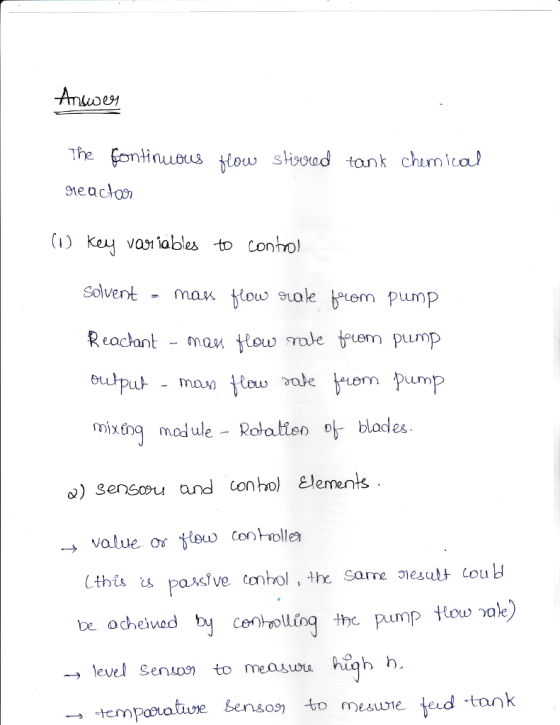 Answer
The Continuous flow stirred tank chemical
reactor
(1) Key variables to control
Solvent - mass flow rate from pump
Reactant - mass flow rate from pump
output - mass flow rate from pump
mixing module - Rotation of blades.
2) Sensors and control Elements.
→ value or flow controller
(this is passive control, the same result could
be acheived by controlling the pump flow rate)
→ level sensor to measure high h.
→ temparature sensor to mesure feed tank